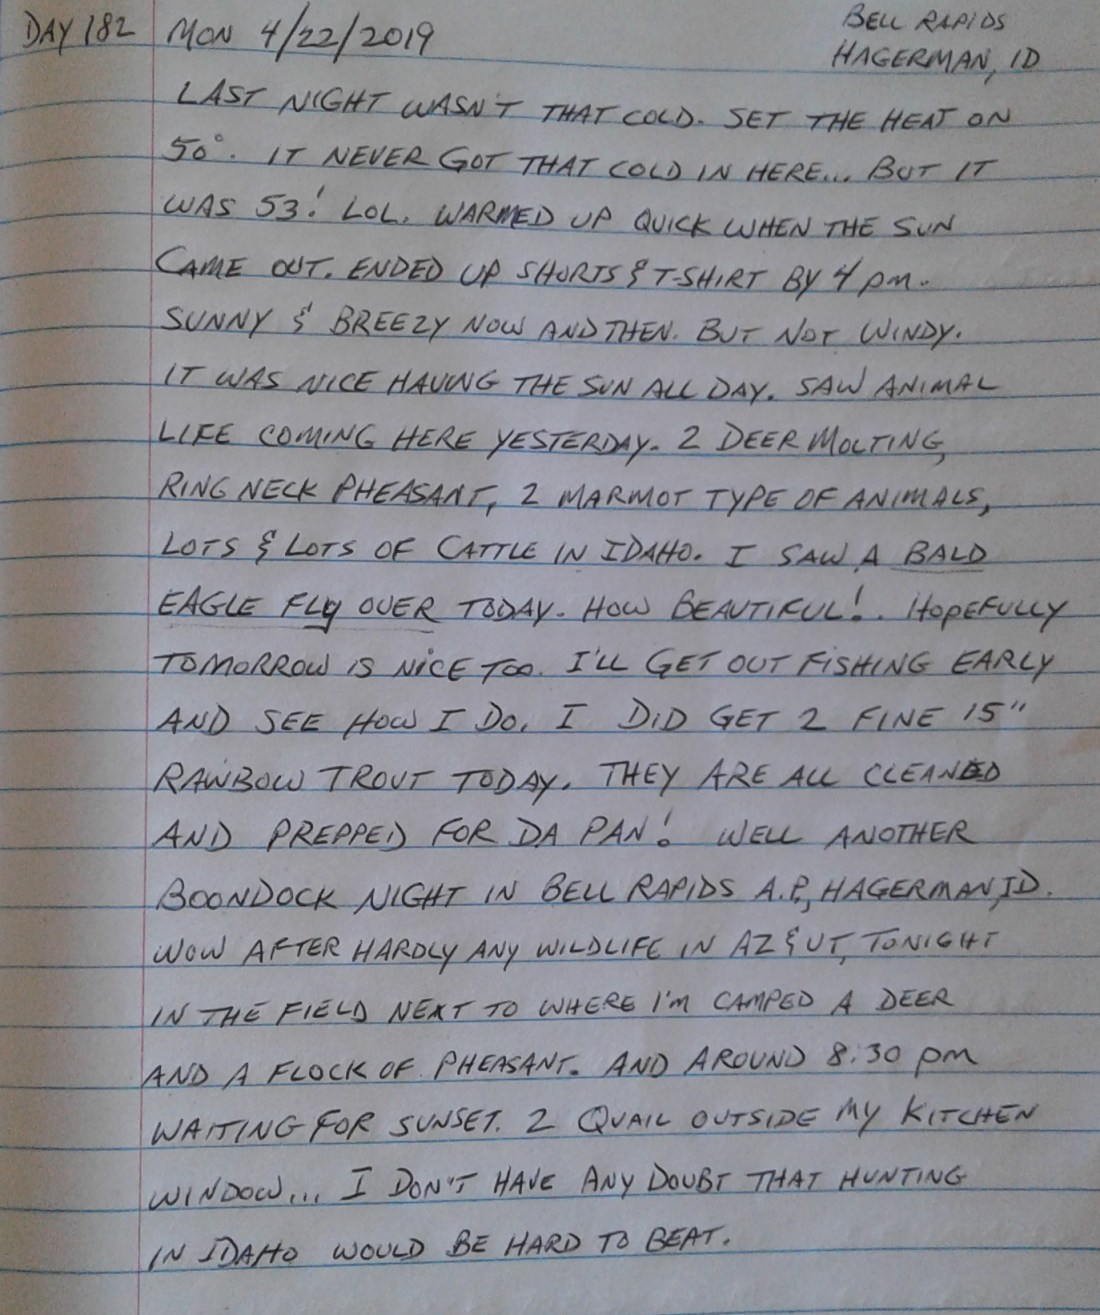 DAY 182 MON 4/22/2019 BELL RAPIDS
HAGERMAN, ID
LAST NIGHT WASN'T THAT COLD. SET THE HEAT ON
50°. IT NEVER GOT THAT COLD IN HERE... BUT IT
WAS 53! LOL. WARMED UP QUICK WHEN THE SUN
CAME OUT. ENDED UP SHORTS & T-SHIRT BY 4 pm.
SUNNY & BREEZY NOW AND THEN. BUT NOT WINDY.
IT WAS NICE HAVING THE SUN ALL DAY. SAW ANIMAL
LIFE COMING HERE YESTERDAY. 2 DEER MOLTING,
RING NECK PHEASANT, 2 MARMOT TYPE OF ANIMALS,
LOTS & LOTS OF CATTLE IN IDAHO. I SAW A BALD
EAGLE FLy OVER TODAY. HOW BEAUTIFUL!. HOPEFULLY
TOMORROW IS NICE TOO. I'LL GET OUT FISHING EARLY
AND SEE HOW I DO. I DID GET 2 FINE 15"
RAINBOW TROUT TODAY. THEY ARE ALL CLEANED
AND PREPPED FOR DA PAN! WELL ANOTHER
BOONDOCK NIGHT IN BELL RAPIDS A.P., HAGERMAN, ID.
WOW AFTER HARDLY ANY WILDLIFE IN AZ & UT, TONIGHT
IN THE FIELD NEXT TO WHERE I'M CAMPED A DEER
AND A FLOCK OF PHEASANT. AND AROUND 8:30 pm
WAITING FOR SUNSET. 2 QUAIL OUTSIDE MY KITCHEN
WINDOW... I DON'T HAVE ANY DOUBT THAT HUNTING
IN IDAHO WOULD BE HARD TO BEAT.